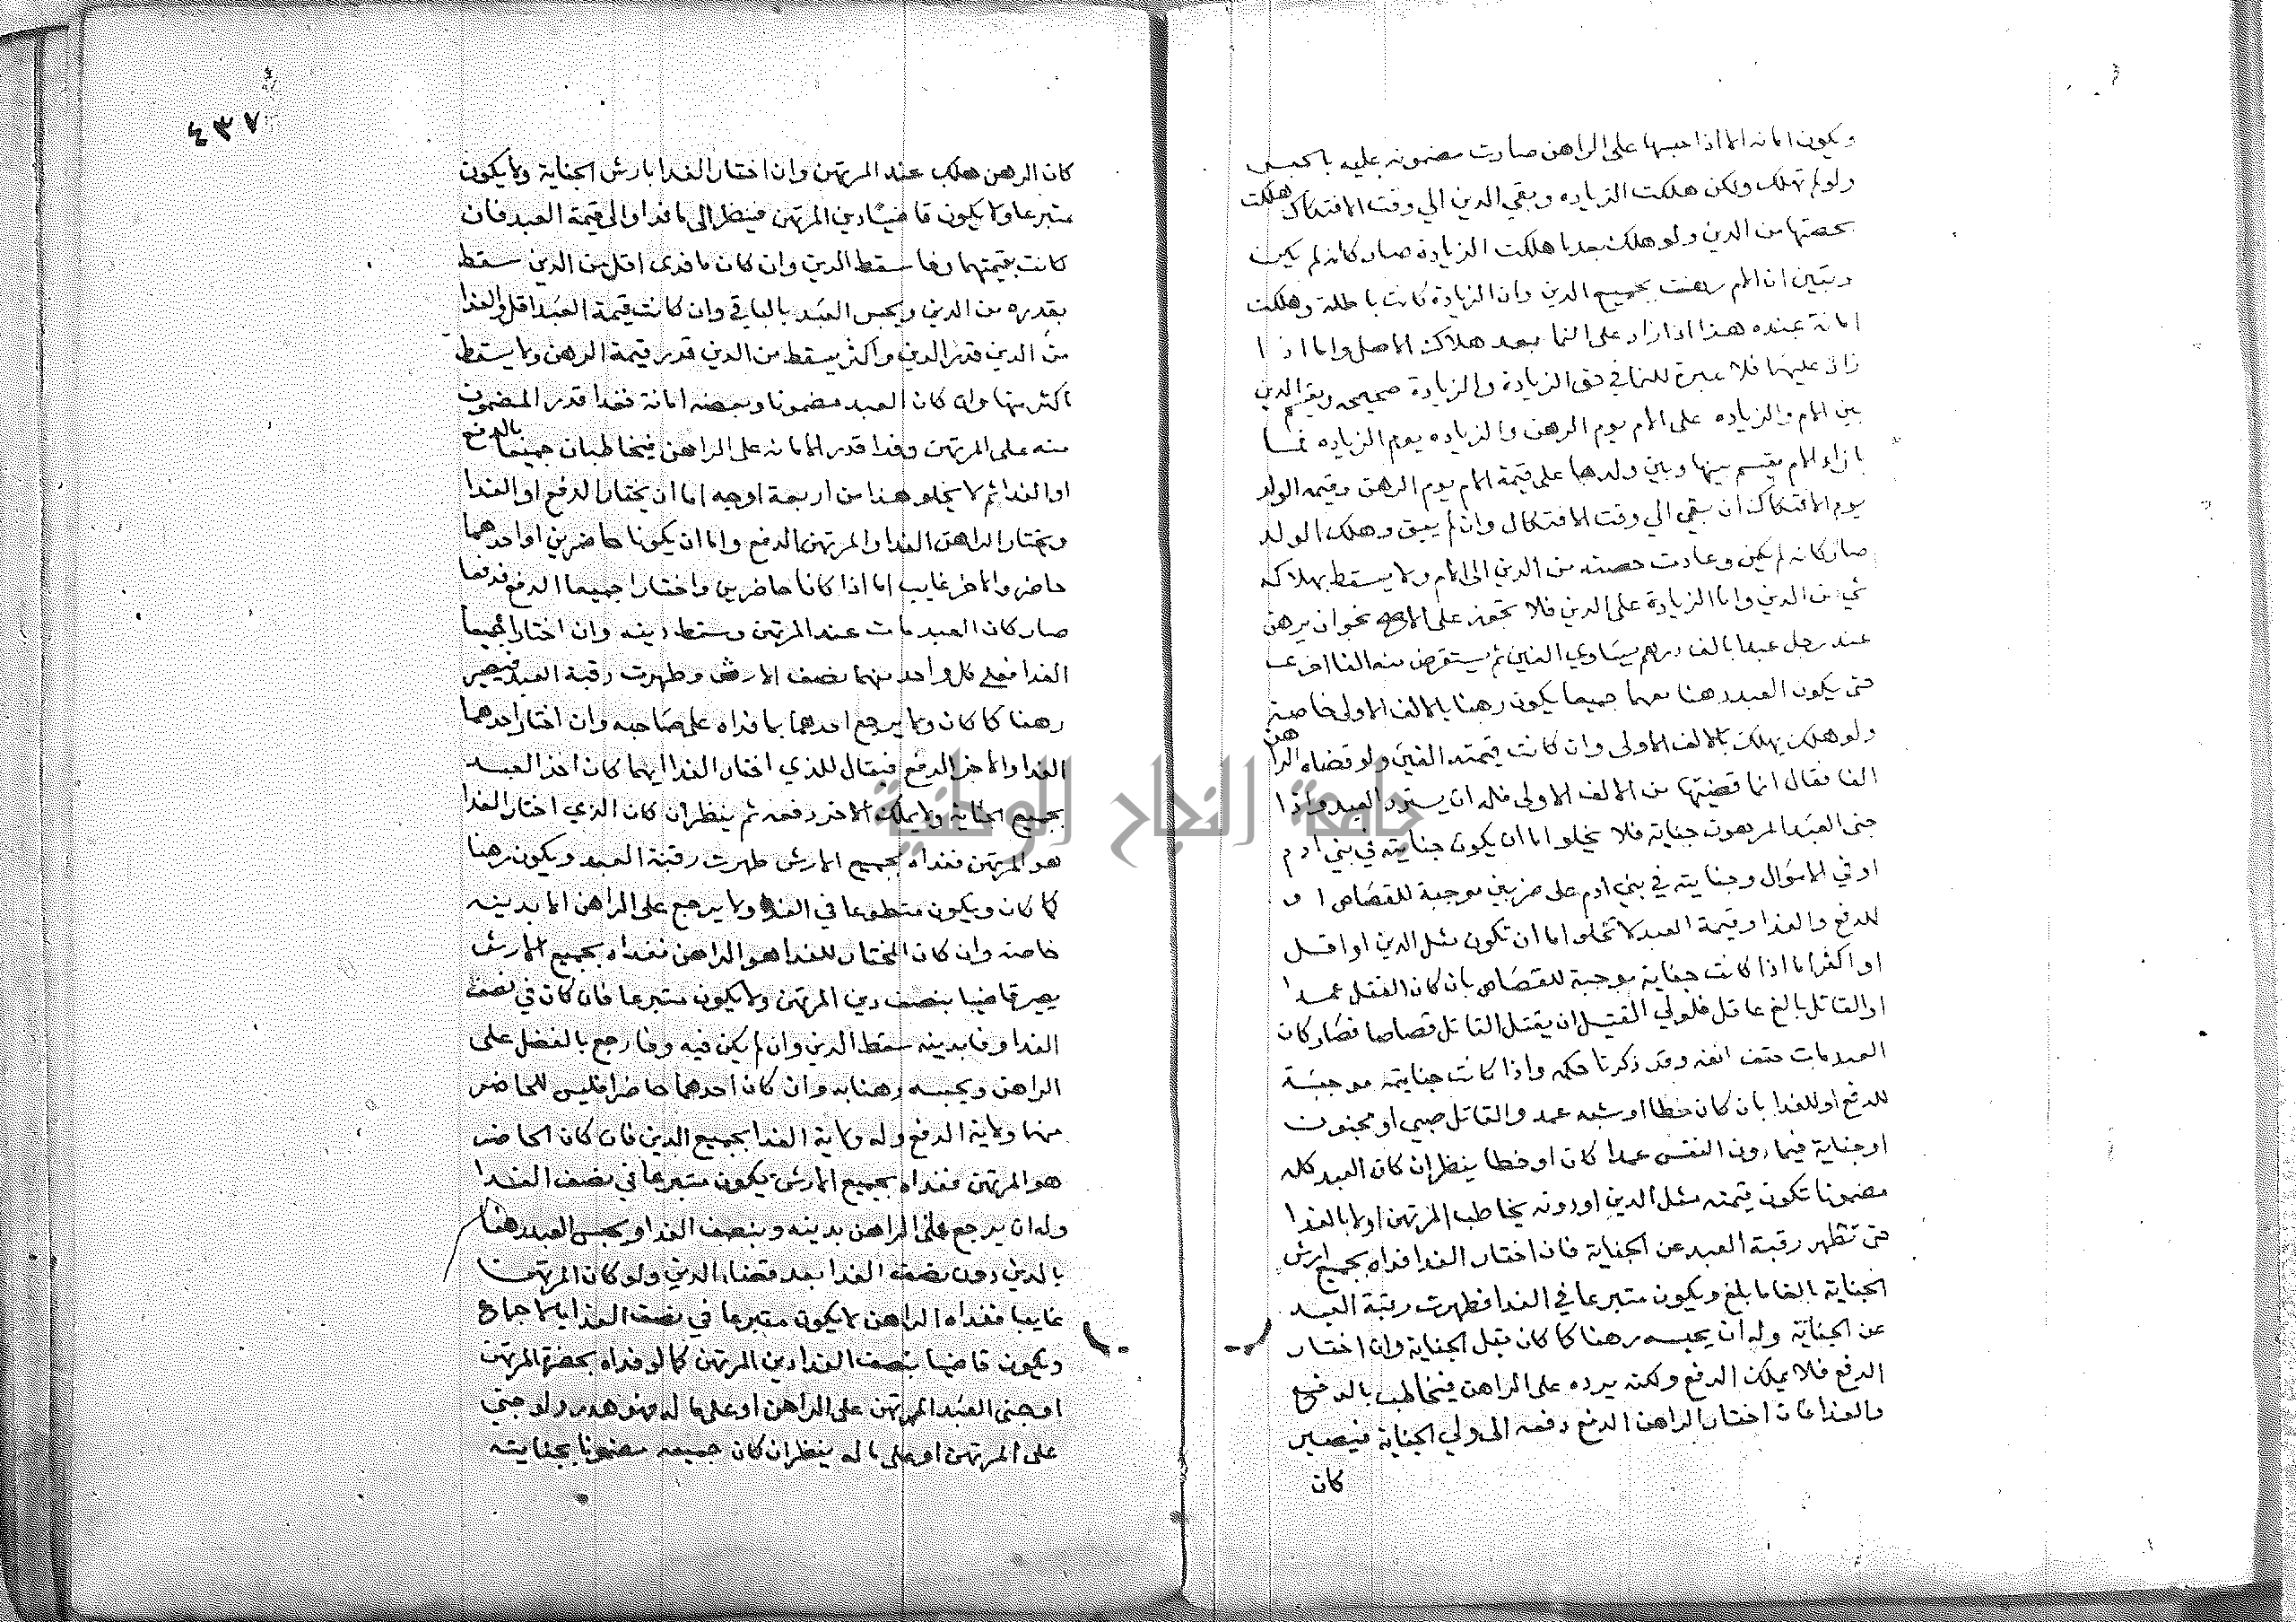 ويكون امانه الا اذا حبسها على الراهن صارت مضمونه عليه بالحبس
ولو لم تهلك ولكن هلكت الزياده وبقي الدين الي وقت الافتكاك هلكت
بحصتها من الدين ولو هلك بعد ما هلكت الزيادة صار كانه لم يكن
وتبين ان الام رهنت بجميع الدين وان الزيادة كانت باطلة وهلكت
امانة عنده هذا اذا زاد على النما بعد هلاك الاصل واما اذا
زاد عليها فلا عبرة للنما في حق الزيادة والزيادة صحيحه ويقسم الدين
بين الام والزياده على الام يوم الرهن والزياده يوم الزياده فما
بازاء الام يقسم بينها وبين ولدها على قيمة الام يوم الرهن وقيمه الولد
يوم الافتكاك ان بقي الي وقت الافتكاك وان لم يبق وهلك الولد
صار كانه لم يكن وعادت حصته من الدين الى الام ولا يسقط بهلاكه
شي من الدين واما الزيادة على الدين فلا تجوز على الاصح نحو ان يرهن
عند رجل عبدا بالف درهم يساوي الفين ثم يستقرض منه الفا اخرى
حتى يكون العبد رهنا بهما جميعا يكون رهنا بالالف الاولى خاصة
ولو هلك يهلك بالالف الاولى وان كانت قيمته الفين ولو قضاه الراهن
الفا فقال انما قضيتها من الالف الاولى فله ان يسترد العبد واذا
جنى العبد المرهون جناية فلا يخلو اما ان يكون جنايته في بني ادم
او في الاموال وجنايته في بني ادم على ضربين موجبة للقصاص او
للدفع والفدا وقيمة العبد لا تخلو اما ان تكون مثل الدين او اقل
او اكثر اما اذا كانت جناية موجبة للقصاص بان كان القتل عمدا
او القاتل بالغ عاقل فلولي القتيل ان يقتل القاتل قصاصا فصار كان
العبد مات حتف انفه وقد ذكرنا حكمه واذا كانت جنايته موجبة
للدفع او للفدا بان كان خطا او شبه عمد والقاتل صبي او مجنون
او جناية فيما دون النفس عمدا كان او خطا ينظر ان كان العبد كله
مضمونا تكون قيمته مثل الدين او دونه يخاطب المرتهن اولا بالفدا
حتى تظهر رقبة العبد عن الجناية فان اختار الفدا فداه بجميع ارش
الجناية بالغا ما بلغ ويكون متبرعا في الفدا فطهرت رقبة العبد
عن الجناية وله ان يحبسه رهنا كما كان قبل الجناية وان اختار
الدفع فلا يملك الدفع ولكنه يرده على الراهن فيخاطب بالدفع
والفدا فان اختار الراهن الدفع دفعه الى ولي الجناية فيصير
كان
٤٣٧
كان الرهن هلك عند المرتهن وان اختار الفدا بارش الجناية ولا يكون
متبرعا ولا يكون قاضيا دين المرتهن فينظر الى ما فدا والى قيمة العبد فان
كانت بقيمتهما وفا سقط الدين وان كان ما فدى اقل من الدين سقط
بقدره من الدين ويحبس العبد بالباقي وان كانت قيمة العبد اقل والفدا
من الدين قدر الدين واكثر يسقط من الدين قدر قيمة الرهن ولا يسقط
اكثر منها وان كان العبد مضمونا وبعضه امانة ففدا قدر المضمون
منه على المرتهن وفدا قدر الامانه على الراهن فيخاطبان جميعا بالدفع
او الفدا ثم لا يخلو هذا من اربعة اوجه اما ان يختار الدفع او الفدا
ويختار الراهن الفدا والمرتهن الدفع واما ان يكونا حاضرين او احدهما
حاضر والاخر غايب اما اذا كانا حاضرين واختارا جميعا الدفع فدفعا
صار كان العبد مات عند المرتهن وسقط دينه وان اختارا جميعا
الفدا فعلى كل واحد منهما نصف الارش وطهرت رقبة العبد فيصير
رهنا كما كان ولا يرجع احدهما بما فداه على صاحبه وان اختار احدهما
الفدا والاخر الدفع فيقال للذي اختار الفدا ايهما كان اخذ العبد
بجميع الجناية ولا يملك الاخر دفعه ثم ينظر ان كان الذي اختار الفدا
هو المرتهن ففداه بجميع الارش طهرت رقبة العبد ويكون رهنا
كما كان ويكون متطوعا في الفدا ولا يرجع على الراهن الا بدينه
خاصة وان كان المختار للفدا هو الراهن ففداه بجميع الارش
يصير قاضيا بنصف دين المرتهن ولا يكون متبرعا فان كان في نصف
الفدا وفا بدينه سقط الدين وان لم يكن فيه وفا رجع بالفضل على
الراهن ويحبسه رهنا به وان كان احدهما حاضرا فليس للحاضر
منهما ولاية الدفع وله ولاية الفدا بجميع الدين فان كان الحاضر
هو المرتهن ففداه بجميع الارش يكون متبرعا في نصف الفدا
وله ان يرجع على الراهن بدينه وبنصف الفدا ويحبس العبد رهنا
بالدين دون نصف الفدا بعد قضاء الدين ولو كان المرتهن
غايبا ففداه الراهن لا يكون متبرعا في نصف الفدا بالاجماع
ويكون قاضيا بنصف الفدا دين المرتهن كما لو فداه بحضرة المرتهن
او جنى العبد المرتهن على الراهن او على ماله فهو هدر ولو جنى
على المرتهن او على ماله ينظر ان كان جميعه مضمونا بجنايته
جامعة النجاح الوطنية